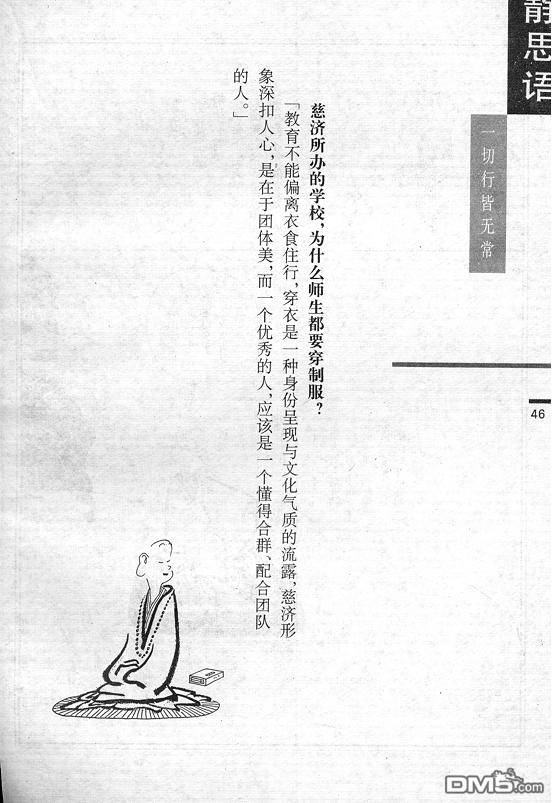 静思语
一切行皆无常
46
慈济所办的学校，为什么师生都要穿制服？
「教育不能偏离衣食住行，穿衣是一种身份呈现与文化气质的流露，慈济形
象深扣人心，是在于团体美，而一个优秀的人，应该是一个懂得合群、配合团队
的人。」
DM5.com